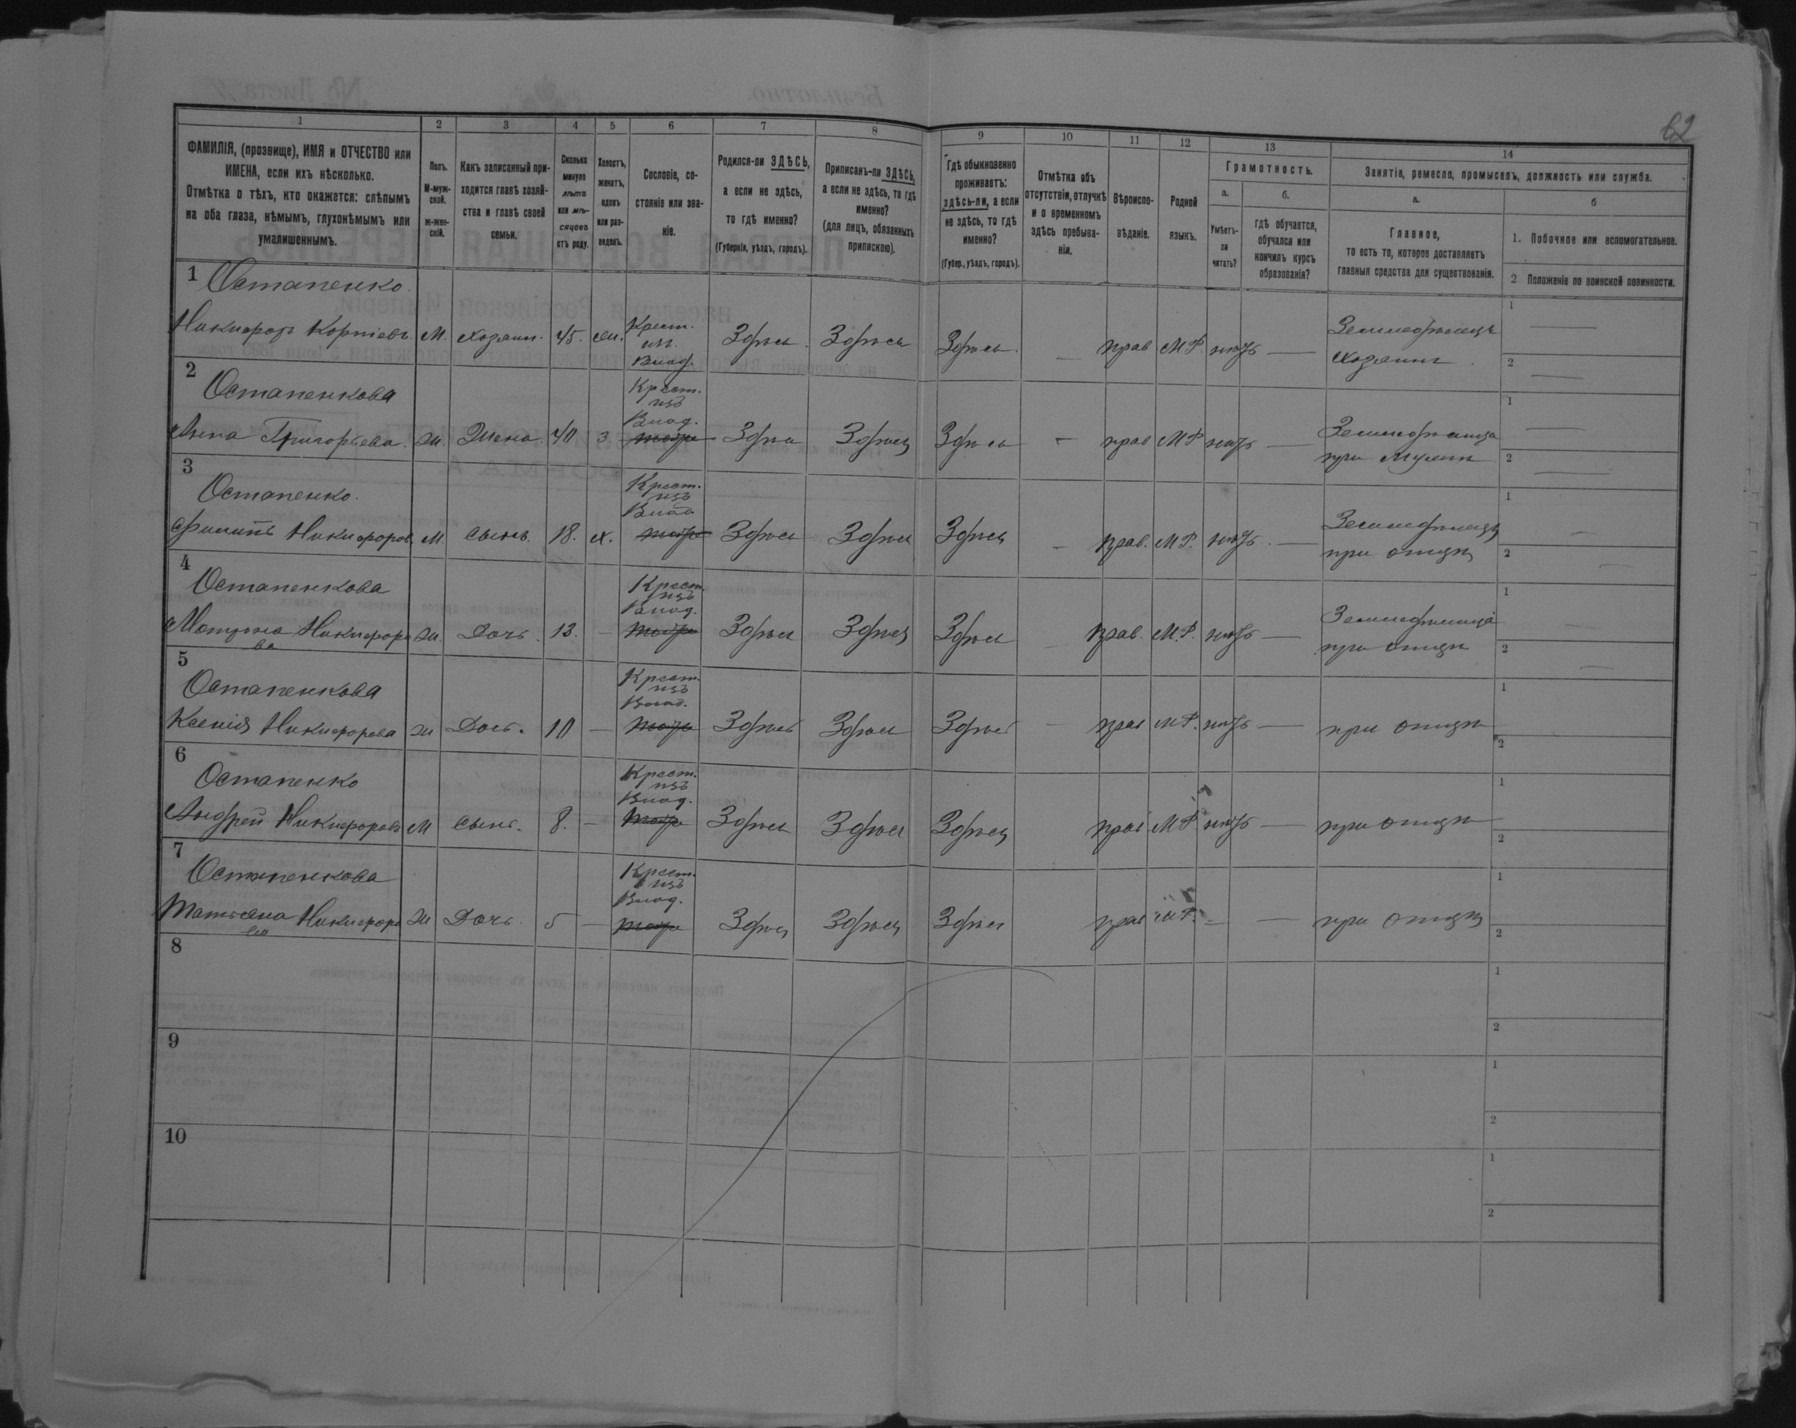 62
1 2 3 4 5 6 7 8 9 10 11 12 13 14
ФАМИЛІЯ, (прозвище), ИМЯ и ОТЧЕСТВО или
ИМЕНА, если ихъ нѣсколько.
Отмѣтка о тѣхъ, кто окажется: слѣпымъ
на оба глаза, нѣмымъ, глухонѣмымъ или
умалишеннымъ.
Полъ.
М-муж-
ской.
Ж-жен-
скій.
Какъ записанный при-
ходится главѣ хозяй-
ства и главѣ своей
семьи.
Сколько
минуло
лѣтъ
или мѣ-
сяцевъ
отъ роду.
Холостъ,
женатъ,
вдовъ
или раз-
веденъ.
Сословіе, со-
стояніе или зва-
ніе.
Родился-ли ЗДѢСЬ,
а если не здѣсь,
то гдѣ именно?
(Губернія, уѣздъ, городъ).
Приписанъ-ли ЗДѢСЬ,
а если не здѣсь, то гдѣ
именно?
(для лицъ, обязанныхъ
припискою).
Гдѣ обыкновенно
проживаетъ:
здѣсь-ли, а если
не здѣсь, то гдѣ
именно?
(Губер., уѣздъ, городъ).
Отмѣтка объ
отсутствіи, отлучкѣ
и о временномъ
здѣсь пребыва-
ніи.
Вѣроиспо-
вѣданіе.
Родной
языкъ.
Грамотность.
а.
Умѣетъ-
ли
читать?
б.
Гдѣ обучается,
обучался или
кончилъ курсъ
образованія?
Занятіе, ремесло, промыселъ, должность или служба.
а.
Главное,
то есть то, которое доставляетъ
главныя средства для существованія.
б
1. Побочное или вспомогательное.
2 Положеніе по воинской повинности.
1 Остапенко.
Никифоръ Корніевъ М. хозяин. 45. жи. Крест. из. Влад. Здѣсь Здѣсь Здѣсь — прав М.Р. нѣтъ — Земледѣлецъ хозяинъ 1 — 2 —
2 Остапенкова
Анна Григорьева. Ж. Жена 40 з Крест. изъ Влад. Здѣсь Здѣсь Здѣсь — прав М.Р нѣтъ — Земледѣлица при мужѣ 1 — 2 —
3 Остапенко.
Филипъ Никифоров М сынъ. 18. х. Крест. изъ Влад Здѣсь Здѣсь Здѣсь — прав. М.Р. нѣтъ — Земледѣлецъ при отцѣ 1 — 2 —
4 Остапенкова
Матрона Никифорова Ж Дочь. 13. — Крест. изъ Влад. Здѣсь Здѣсь Здѣсь — прав. М.Р. нѣтъ — Земледѣлица при отцѣ 1 — 2 —
5 Остапенкова
Ксенія Никифорова Ж Дочь. 10 — Крест. изъ Влад. Здѣсь Здѣсь Здѣсь — прав М.Р. нѣтъ — при отцѣ 1 2
6 Остапенко
Андрей Никифоровъ М сынъ. 8. — Крест. изъ Влад. Здѣсь Здѣсь Здѣсь прав М.Р. нѣтъ — при отцѣ 1 2
7 Остапенкова
Татьяна Никифорова Ж Дочь. 5 — Крест. изъ Влад. Здѣсь Здѣсь Здѣсь прав М.Р. — — при отцѣ 1 2
8 1 2
9 1 2
10 1 2